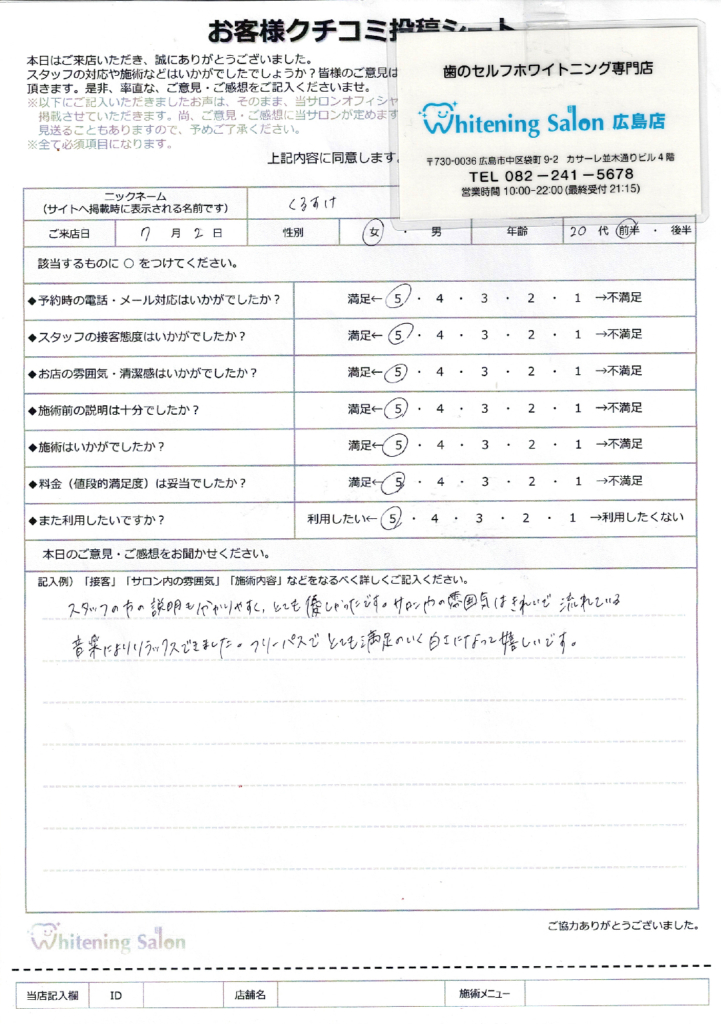 お客様クチコミ投稿シート
本日はご来店いただき、誠にありがとうございました。
スタッフの対応や施術などはいかがでしたでしょうか？皆様のご意見は
頂きます。是非、率直な、ご意見・ご感想をご記入くださいませ。
※以下にご記入いただきましたお声は、そのまま、当サロンオフィシャ
掲載させていただきます。尚、ご意見・ご感想に当サロンが定めます
見送ることもありますので、予めご了承ください。
※全て必須項目になります。
上記内容に同意します。
歯のセルフホワイトニング専門店
Whitening Salon 広島店
〒730-0036 広島市中区袋町 9-2 カサーレ並木通りビル 4 階
TEL 082－241－5678
営業時間 10:00-22:00 (最終受付 21:15)
ニックネーム
(サイトへ掲載時に表示される名前です)
くるすけ
ご来店日 7 月 2 日 性別 女 ・ 男 年齢 20 代 前半 ・ 後半
該当するものに ○ をつけてください。
◆予約時の電話・メール対応はいかがでしたか？ 満足← 5 ・ 4 ・ 3 ・ 2 ・ 1 →不満足
◆スタッフの接客態度はいかがでしたか？ 満足← 5 ・ 4 ・ 3 ・ 2 ・ 1 →不満足
◆お店の雰囲気・清潔感はいかがでしたか？ 満足← 5 ・ 4 ・ 3 ・ 2 ・ 1 →不満足
◆施術前の説明は十分でしたか？ 満足← 5 ・ 4 ・ 3 ・ 2 ・ 1 →不満足
◆施術はいかがでしたか？ 満足← 5 ・ 4 ・ 3 ・ 2 ・ 1 →不満足
◆料金（値段的満足度）は妥当でしたか？ 満足← 5 ・ 4 ・ 3 ・ 2 ・ 1 →不満足
◆また利用したいですか？ 利用したい← 5 ・ 4 ・ 3 ・ 2 ・ 1 →利用したくない
本日のご意見・ご感想をお聞かせください。
記入例）「接客」「サロン内の雰囲気」「施術内容」などをなるべく詳しくご記入ください。
スタッフの方の説明も分かりやすく、とても優しかったです。サロン内の雰囲気はきれいで 流れている
音楽によりリラックスできました。フリーパスで とても満足のいく白さになって嬉しいです。
ご協力ありがとうございました。
Whitening Salon
当店記入欄 ID 店舗名 施術メニュー